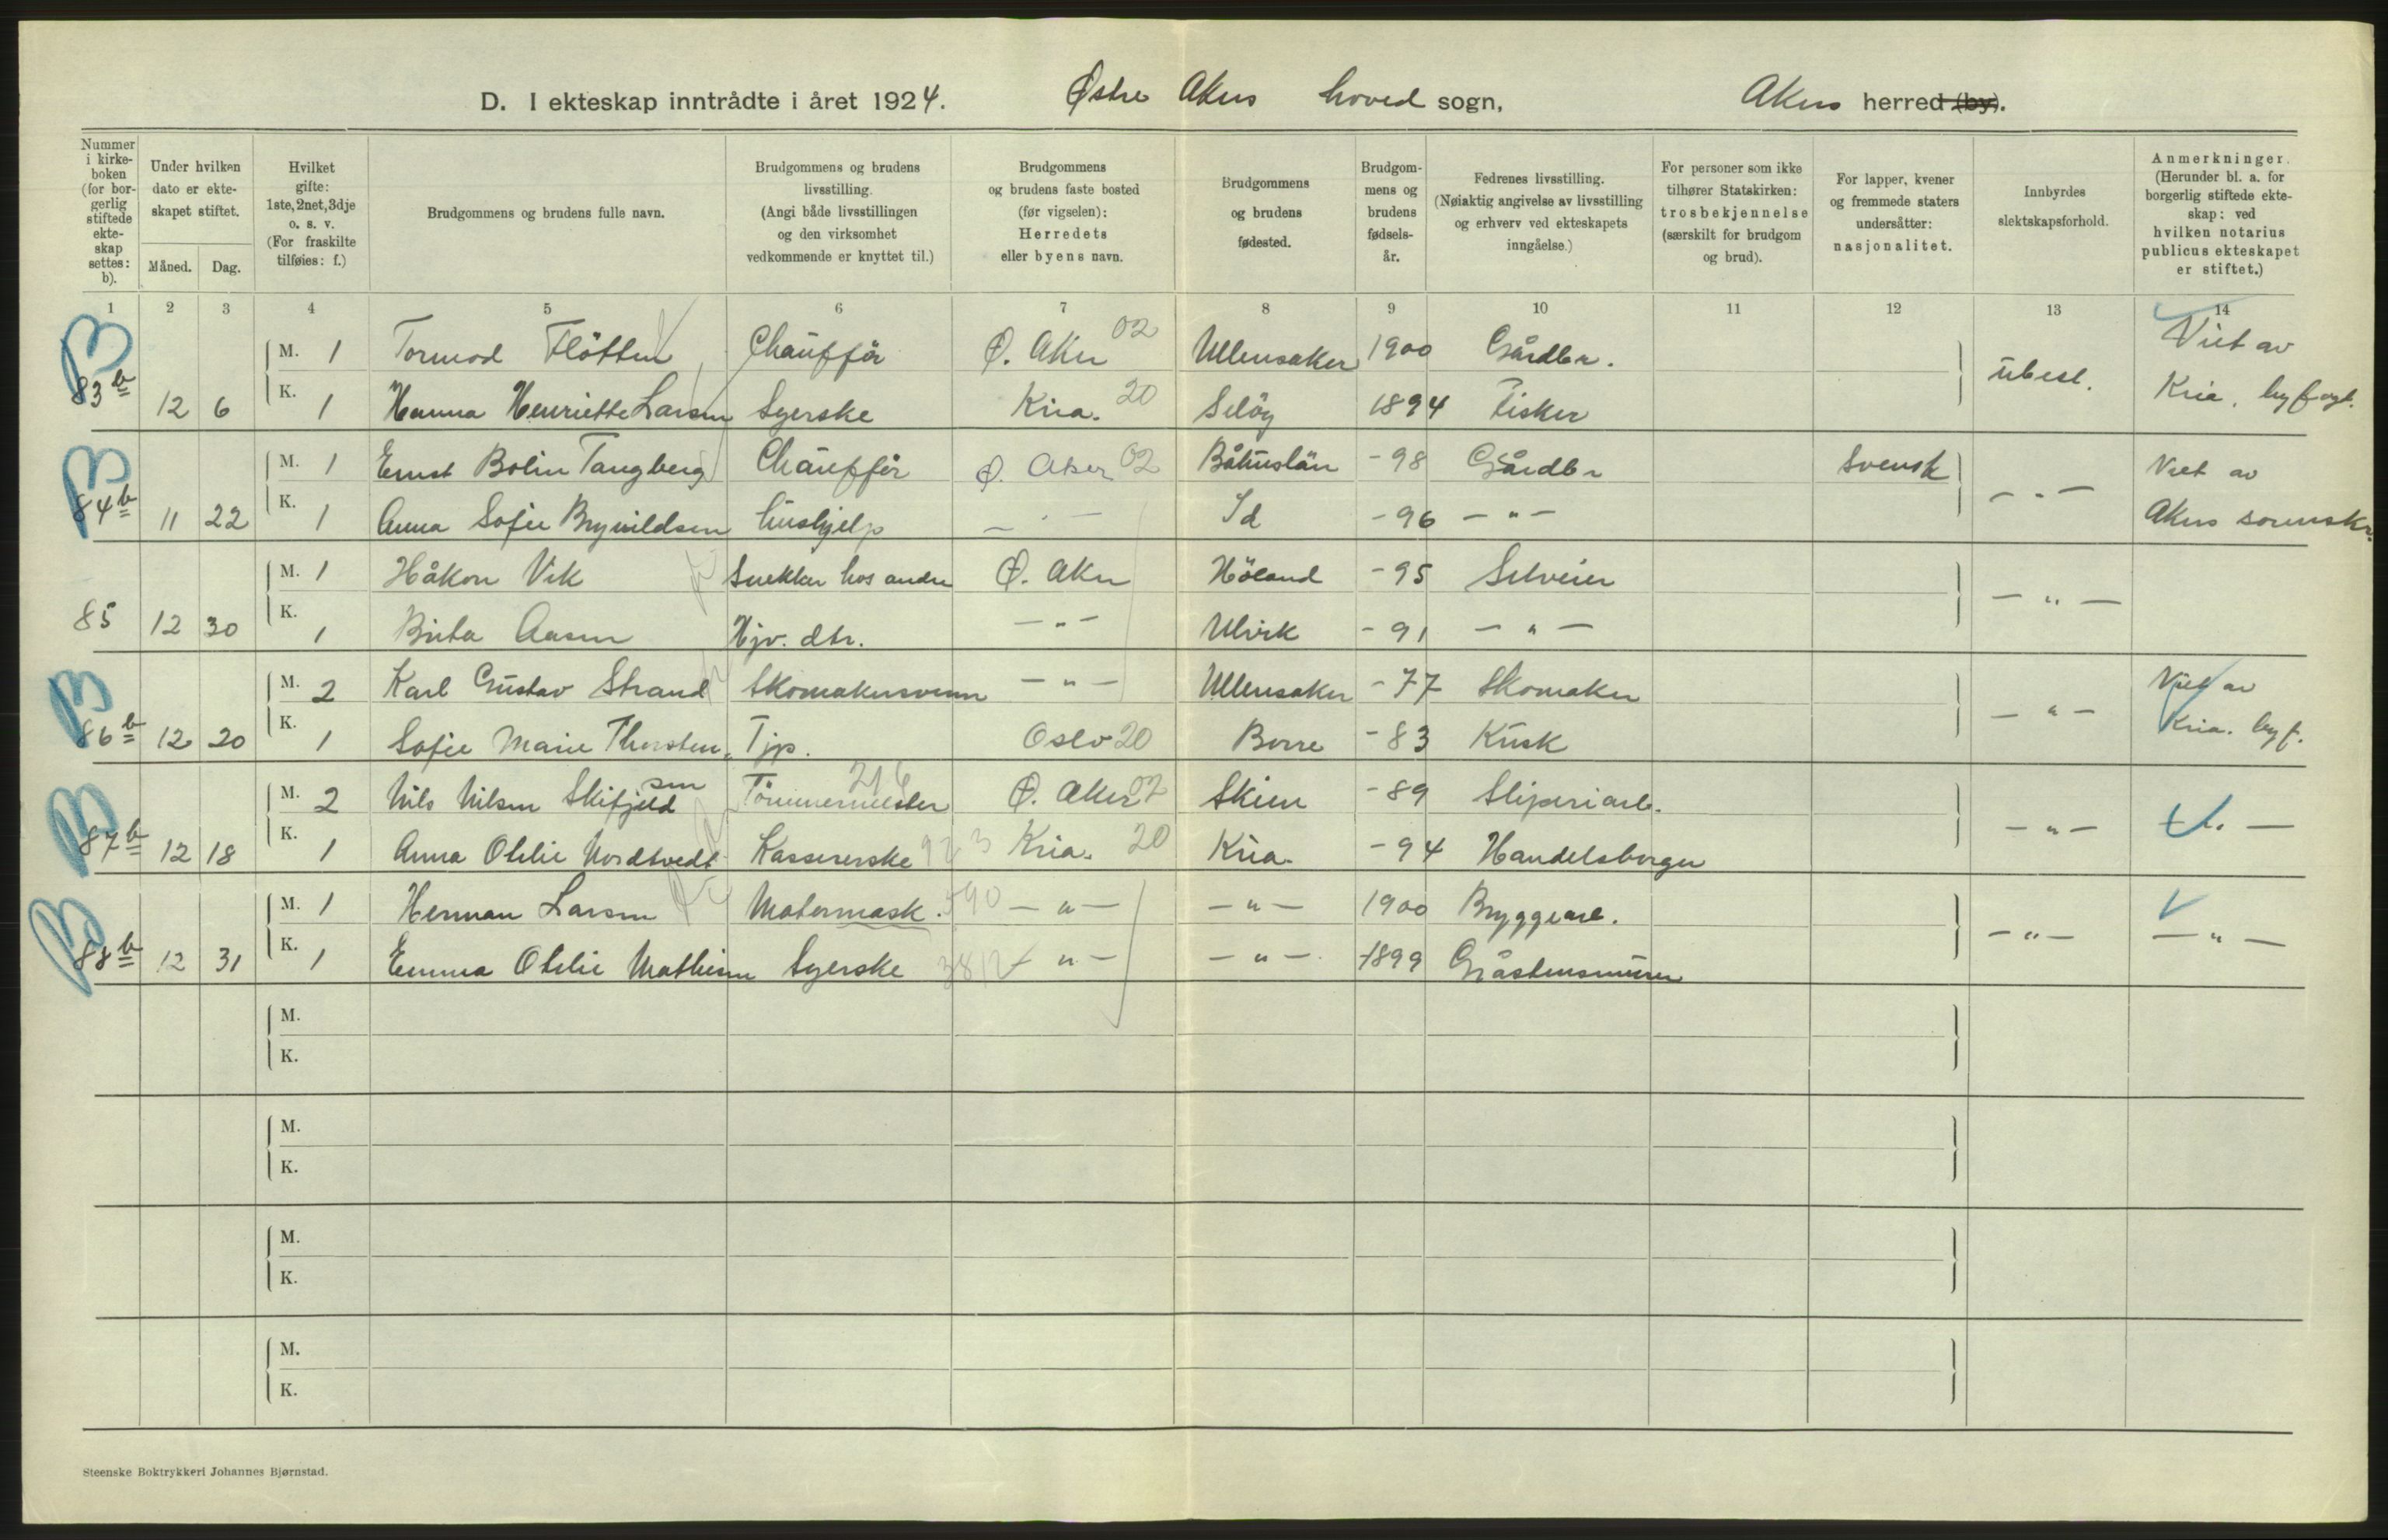 D. I ekteskap inntrådte i året 1924. Østre Akers hoved sogn, Akers herred (by).
Nummer i kirke- boken (for bor- gerlig stiftede ekte- skap settes: b).
Under hvilken dato er ekte- skapet stiftet.
Måned. Dag.
Hvilket gifte: 1ste, 2net, 3dje o. s. v. (For fraskilte tilføies: f.)
Brudgommens og brudens fulle navn.
Brudgommens og brudens livsstilling. (Angi både livsstillingen og den virksomhet vedkommende er knyttet til.)
Brudgommens og brudens faste bosted (før vigselen): Herredets eller byens navn.
Brudgommens og brudens fødested.
Brudgom- mens og brudens fødsels- år.
Fedrenes livsstilling. (Nøiaktig angivelse av livsstilling og erhverv ved ekteskapets inngåelse.)
For personer som ikke tilhører Statskirken: trosbekjennelse (særskilt for brudgom og brud).
For lapper, kvener og fremmede staters undersåtter: nasjonalitet.
Innbyrdes slektskapsforhold.
Anmerkninger. (Herunder bl. a. for borgerlig stiftede ekte- skap: ved hvilken notarius publicus ekteskapet er stiftet.)
1 2 3 4 5 6 7 8 9 10 11 12 13 14
B M. 1 Tormod Flötten Chaufför Ø. Aker 02 Ullensaker 1900 Gårdbr. ubesl. Viet av
83b 12 6 K. 1 Hanna Henriette Larsen Syerske Kria. 20 Selöy 1894 Fisker Kria. byfogt.
B M. 1 Ernst Bolin Tangberg Chaufför Ø. Aker 02 Båhuslän -98 Gårdbr Svensk - " - Viet av
84b 11 22 K. 1 Anna Sofie Brynildsen Hushjelp - " - Id -96 - " - Akers sorenskr.
M. 1 Håkon Vik Snekker hos andre Ø. Aker Höland -95 Selveier - " -
85 12 30 K. 1 Brita Aasen Hjv. dtr. - " - Ulvik -91 - " -
B M. 2 Karl Gustav Strand Skomakersvenn - " - Ullensaker -77 Skomaker - " - Viet av
86b 12 20 K. 1 Sofie Marie Thorsten- sen Tjp. Oslo 20 Borre -83 Kusk Kria. byf.
B M. 2 Nils Nilsen Skifjeld Tömmermester 216 Ø. Aker 02 Skien -89 Sliperiarb. - " -
87b 12 18 K. 1 Anna Otilie Nordtvedt Kassererske 923 Kria. 20 Kria. -94 Handelsborger
B M. 1 Herman Larsen Motormask. 590 - " - - " - 1900 Bryggearb. - " - - " -
88b 12 31 K. 1 Emma Otilie Mathisen Syerske - " - - " - 1899 Gråstensmurer
M.
K.
M.
K.
M.
K.
M.
K.
Steenske Boktrykkeri Johannes Bjørnstad.